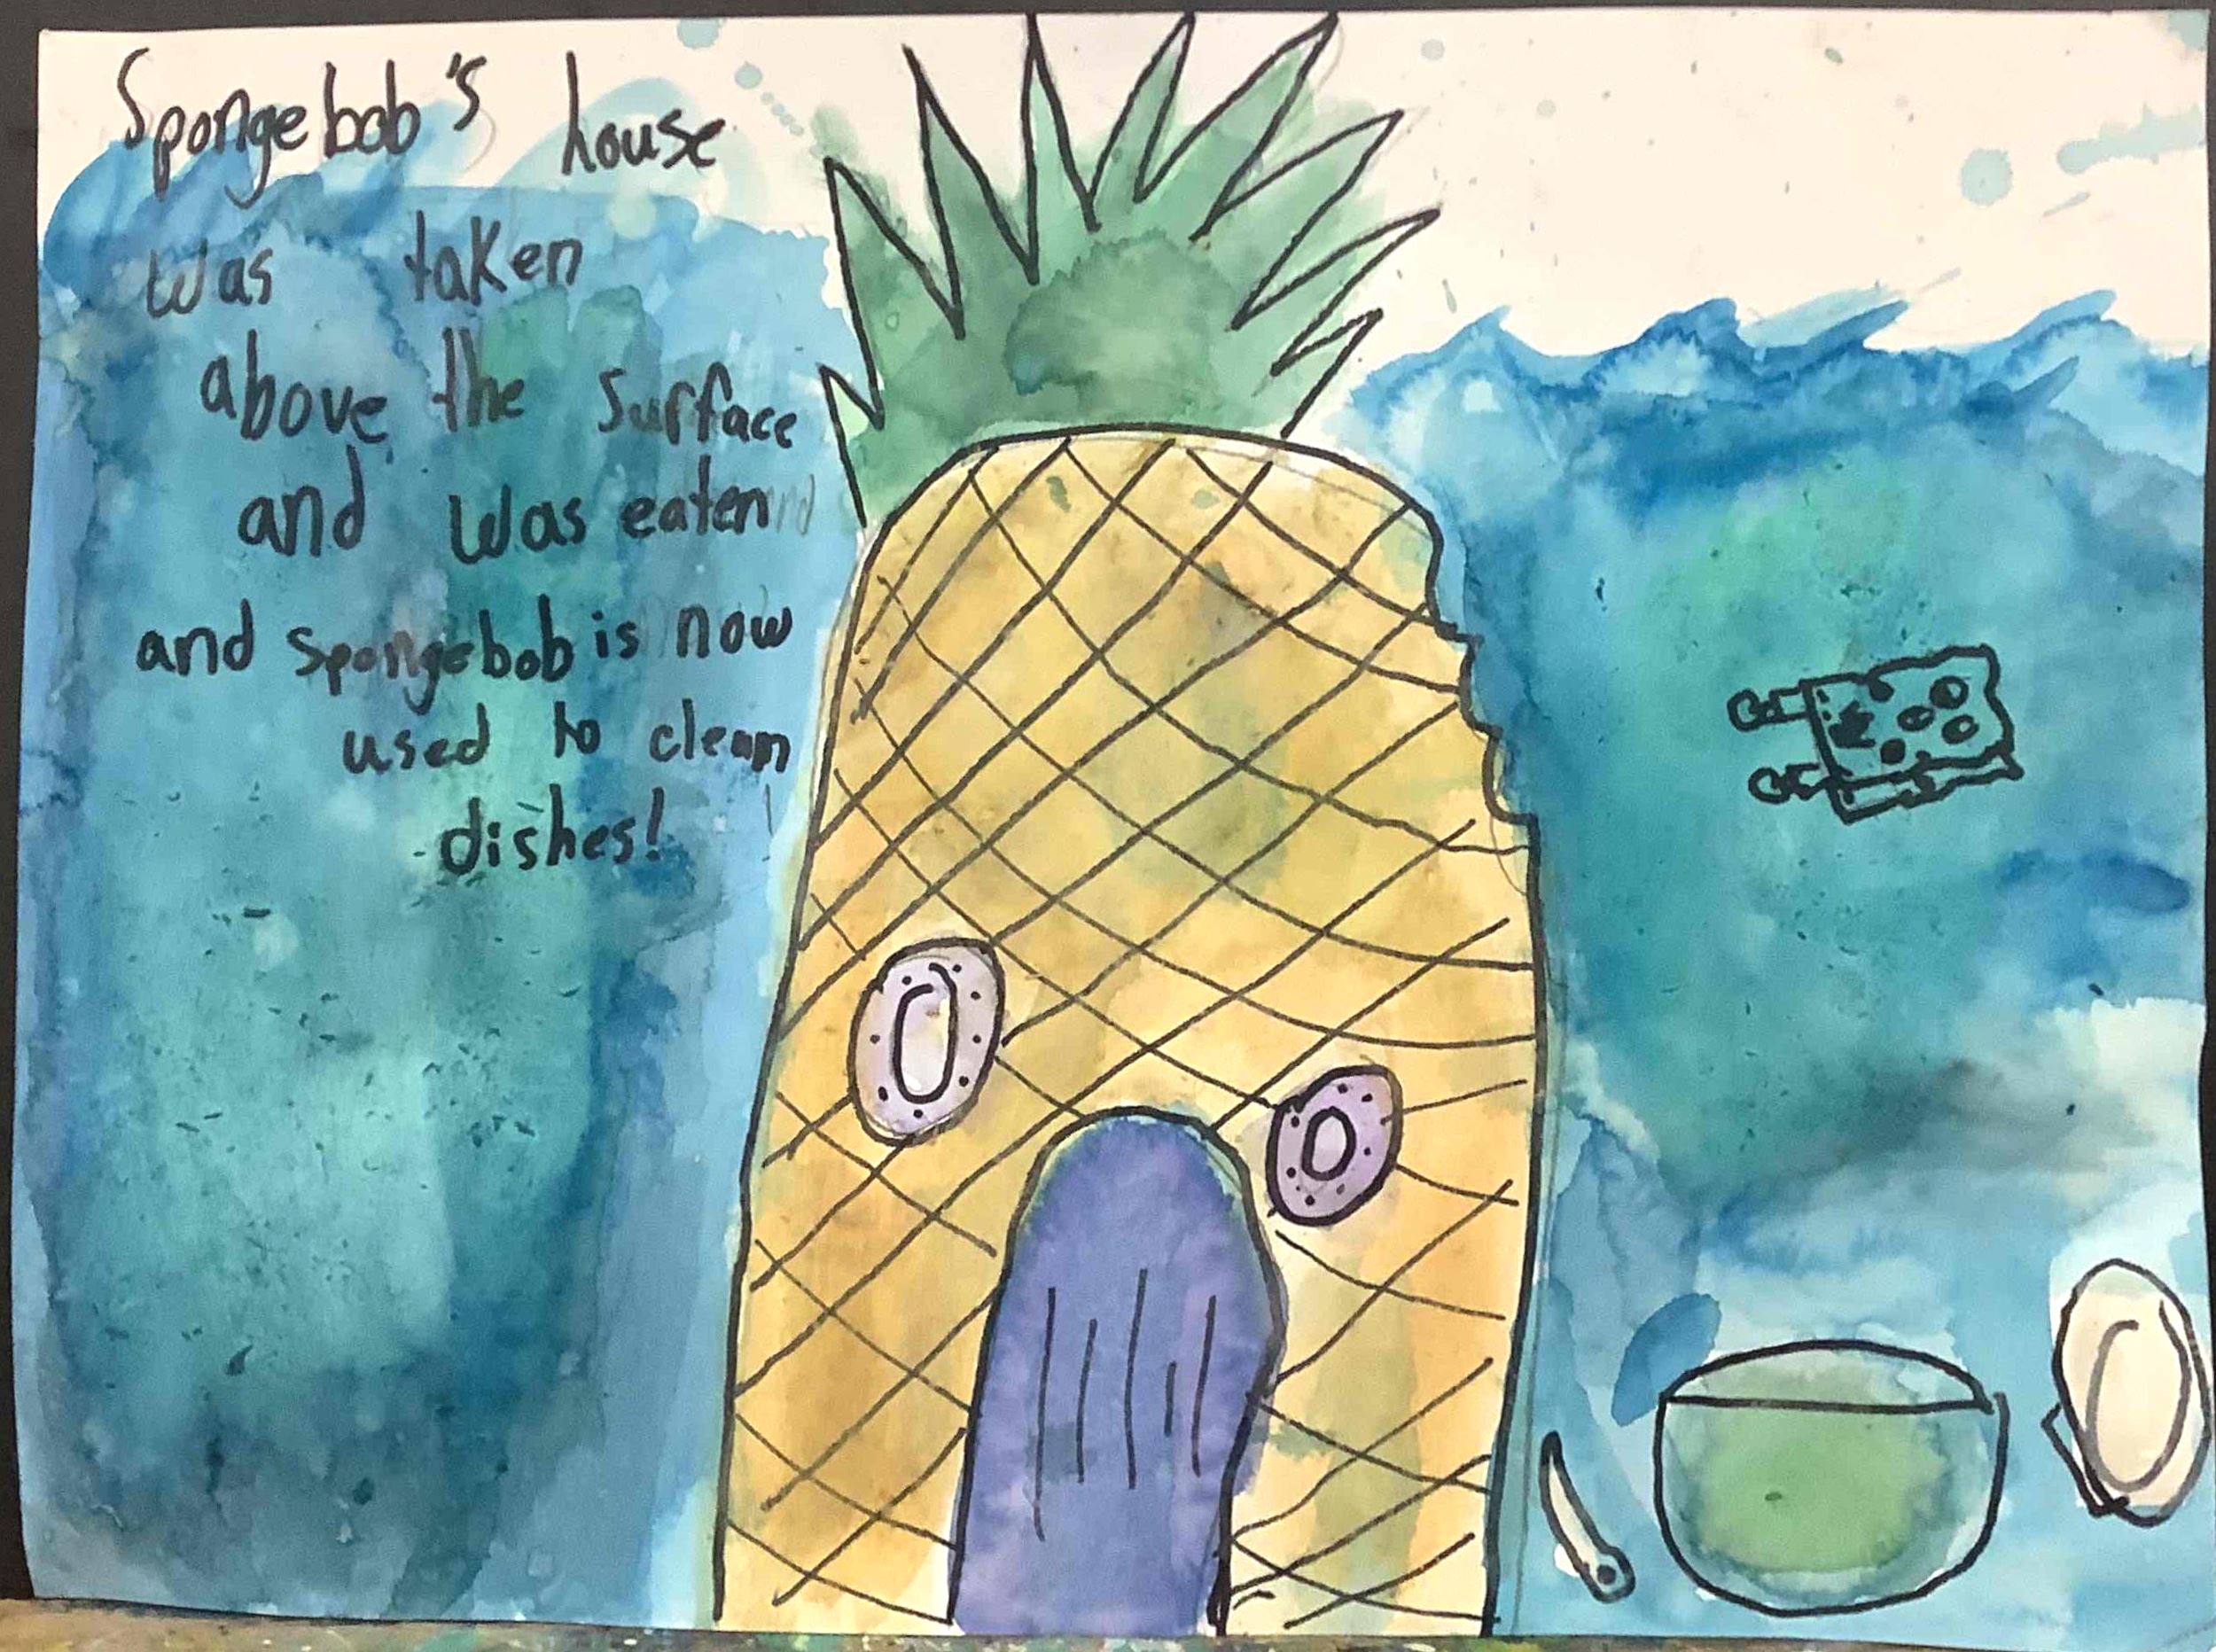 Spongebob's house
was taken
above the surface
and was eaten
and spongebob is now
used to clean
dishes!